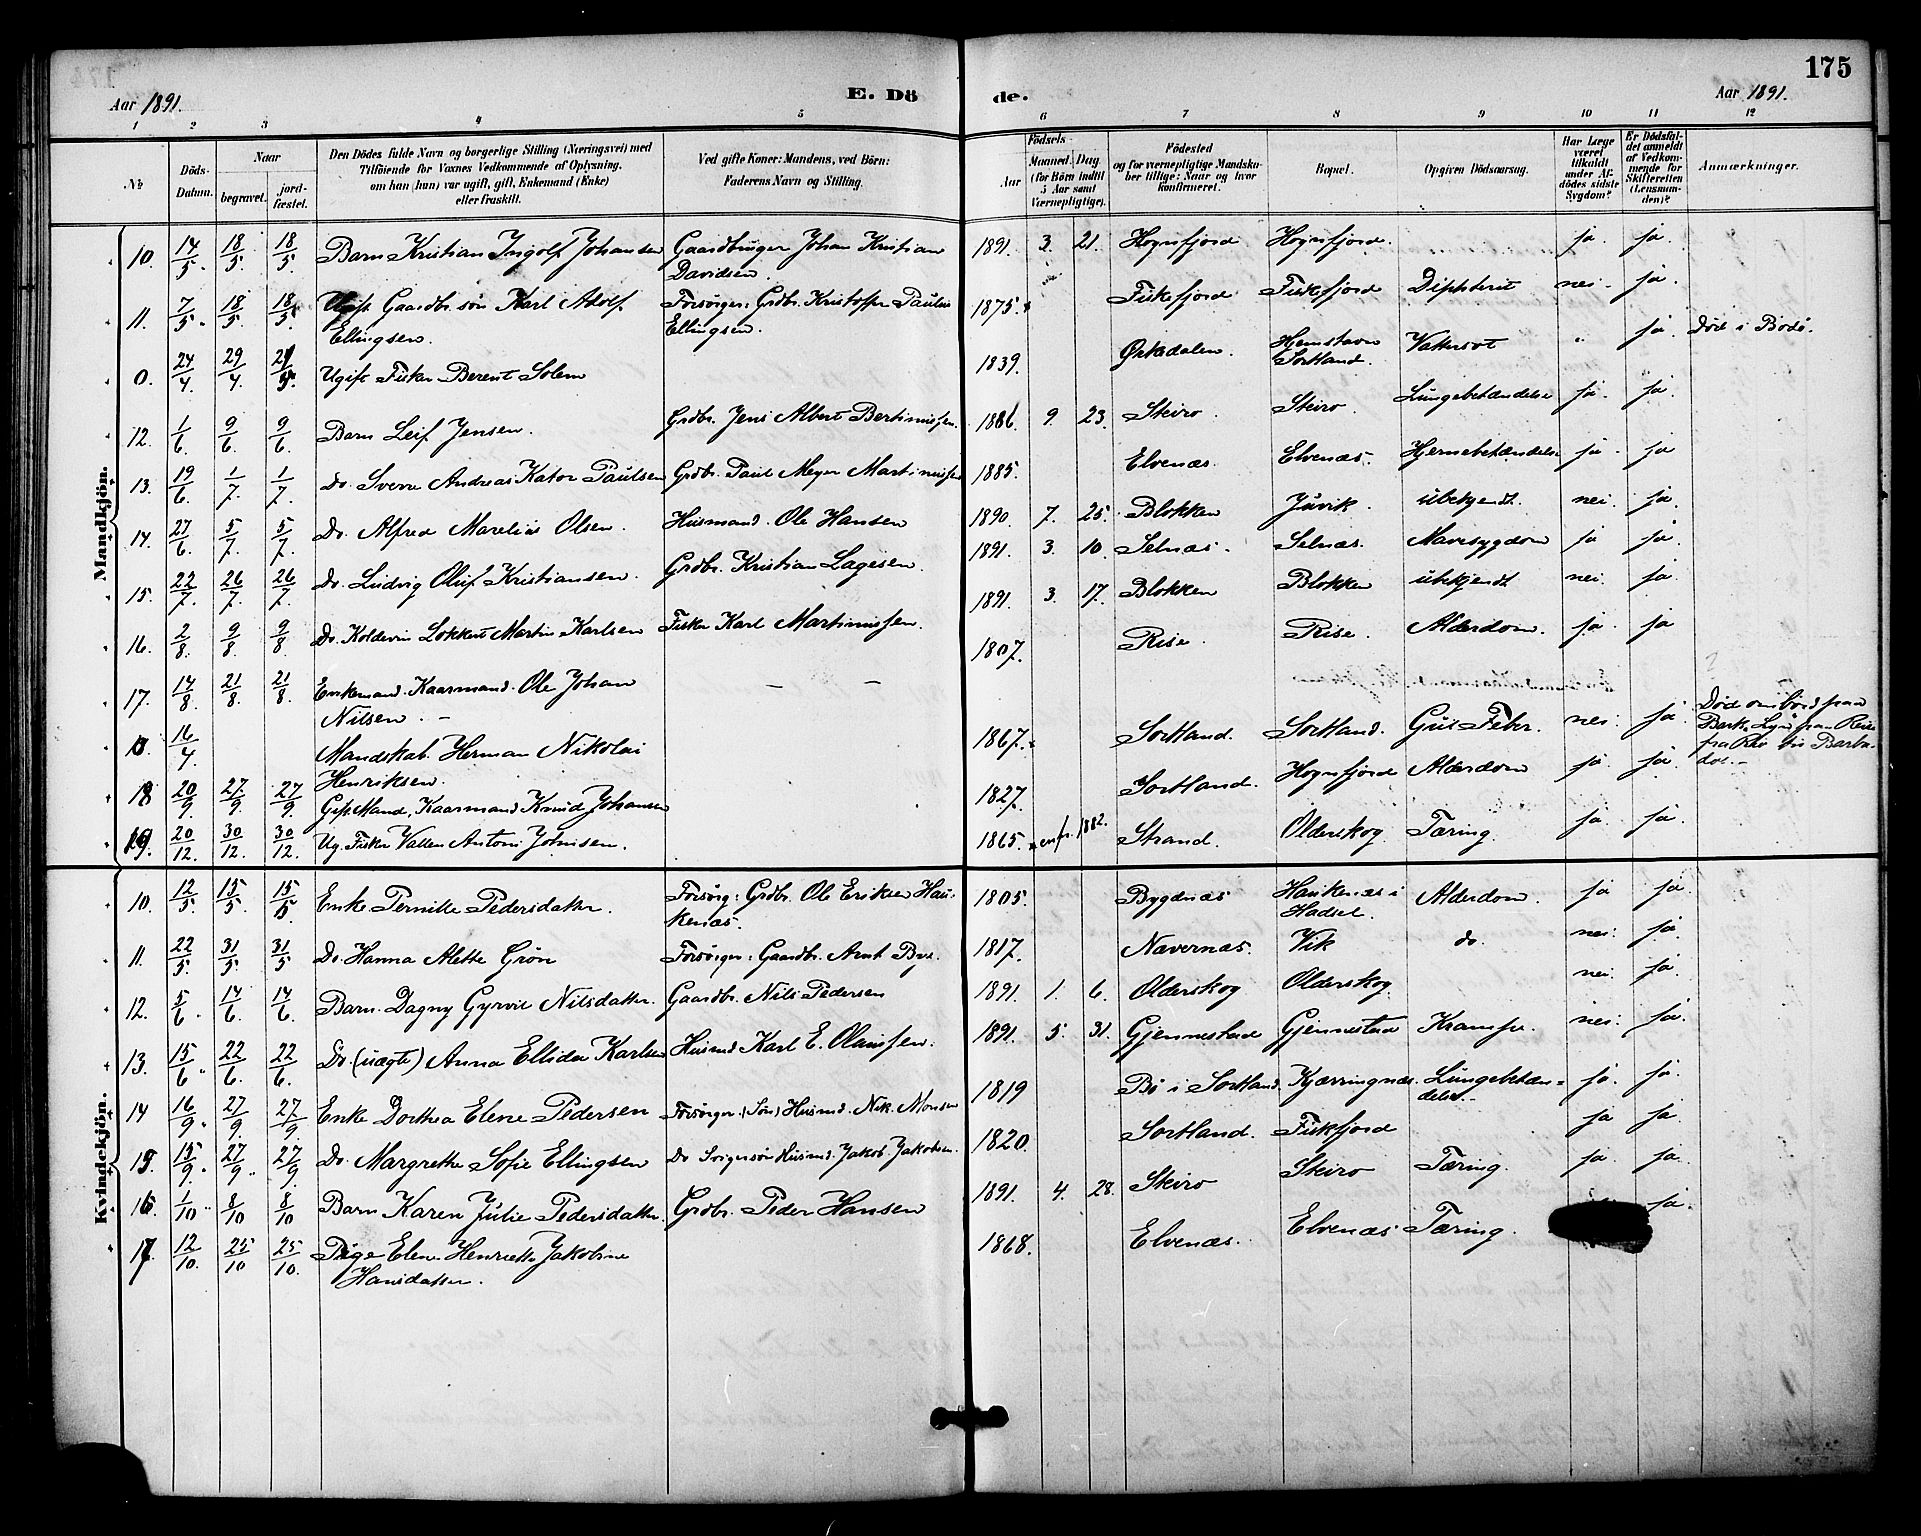 175
Aar 1891.
E. Dö
de.
Aar 1891.
1 2 3 4 5 6 7 8 9 10 11 12
№
Döds-Datum.
Naar
begravet.
jord-fæstet.
Den Dödes fulde Navn og borgerlige Stilling (Næringsvei) med
Tilföiende for Voxnes Vedkommende af Oplysning,
om han (hun) var ugift, gift, Enkemand (Enke)
eller fraskilt.
Ved gifte Koner: Mandens, ved Börn:
Faderens Navn og Stilling.
Födsels-
Aar
Maaned. Dag
(for Börn indtil
5 Aar samt
Værnepligtige).
Födested
og for værnepligtige Mandska-
ber tillige: Naar og hvor
konfirmeret.
Bopæl.
Opgiven Dödsaarsag.
Har Læge
været
tilkaldt
under Af-
dödes sidste
Sygdom?
Er Dödsfal-
det anmeldt
af Vedkom-
mende for
Skifteretten
(Lensman-
den)?
Anmærkninger.
Mandkjön.
10. 14/5. 18/5 18/5 Barn Kristian Ingolf Johansen Gaardbruger Johan Kristian 1891. 3. 21. Hognfjord Hognfjord. ja. ja.
Davidsen.
11. 7/5. 18/5 18/5. Ugift Gaardbr. søn Karl Adolf Forsørger: Grdbr. Kristoffer Paulin 1875. Fiskefjord Fiskefjord Diphterit nei. ja.
Ellingsen. Ellingsen.
0. 24/4. 29/4. Ugift Fisker Berent Solem 1839. Ørkedalen. Hemstavn Vattersot " ja. Død i Bodø.
Sortland.
12. 1/6 9/6 9/6. Barn Leif Jensen. Grdbr. Jens Albert Bertinussen. 1886. 9. 23. Skiro. Skiro. Lungebetændelse ja. ja.
13. 19/6. 1/7. 1/7. Do. Sverre Andreas Kator Paulsen Grdbr. Paul Meyer Martinussen 1885. Elvenæs. Elvenæs. Hjernebetændelse ja. ja
14. 27/6 5/7. 5/7. Do. Alfred Marelius Olsen. Husmand. Ole Hansen 1890. 7. 25. Blokken Juvik. ubekjendt. nei. ja.
15. 22/7. 26/7. 26/7. Do. Ludvig Oluf Kristiansen. Grdbr. Kristian Lagesen. 1891. 3. 10. Selnæs. Selnæs. Mavesygdom ja ja.
16. 2/8. 9/8. 9/8. Do. Koldevin Lokkert Martin Karlsen Fisker Karl Martinussen. 1891. 3. 17. Blokken Blokken ubekjendt nei. ja.
17. 14/8. 21/8. 21/8. Enkemand. Kaarmand. Ole Johan — — 1807. Rise. Rise. Alderdom. ja. ja
Nilsen. —
0. 16/4. Mandskab. Herman Nikolai 1867. Sortland. Sortland. Gul Feber. nei. ja. Død ombord paa
Henriksen. Bark
18 20/9. 27/9 27/9. Gift Mand, Kaarmand Knud Johansen 1827. Sortland. Hognfjord Alderdom ja. ja.
19. 20/12. 30/12. 30/12. Ug. Fisker Vallen Antoni Johnsen. 1865. 1882. Strand. Olderskog Tæring. ja. ja.
Kvindekjön.
10. 12/5. 15/5. 15/5 Enke Pernille Pedersdatter. Forsørg: Grdbr. Ole Eriksen Hau- 1805. Bygdnæs Haukenæs i Alderdom. ja ja.
kenæs. Hadsel.
11. 22/5. 31/5. 31/5 Do. Hanna Alette Grøn Forsørger: Gaardbr. Arnt Bye. 1817. Navernæs. Vik do. nei. ja.
12. 5/6. 14/6. 14/6. Barn. Dagny Gyrvil Nilsdatter. Gaardbr. Nils Pedersen 1891. 1. 6. Olderskog Olderskog. nei. ja.
13. 15/6. 22/6. 22/6. Do. (uægte) Anna Ellida Karlsen Husmd Karl E. Olaussen. 1891. 5. 31. Gjennestad Gjennestad Krampe. nei. ja.
14 16/9. 27/9. 27/9. Enke Dorthea Elene Pedersen Forsørger (Søn) Husmd. Nik. Monsen 1819 Bø i Sortland. Kjærringnæs. Lungebetæn-
delse ja. ja.
15. 15/9. 27/9. 27/9. Do. Margrethe Sofie Ellingsen Do Svigersøn Husmd. Jakob Jakobsen. 1820. Sortland. Fiskfjord ja ja.
16. 1/10. 8/10 8/10 Barn Karen Julie Pedersdatter. Grdbr. Peder Hansen 1891. 4. 28. Skiro Skiro Tæring. ja. ja.
17 12/10. 25/10 25/10. Pige Elen Henriette Jakobine 1868. Elvenæs. Elvenæs Tæring. ja.
Hansdatter.